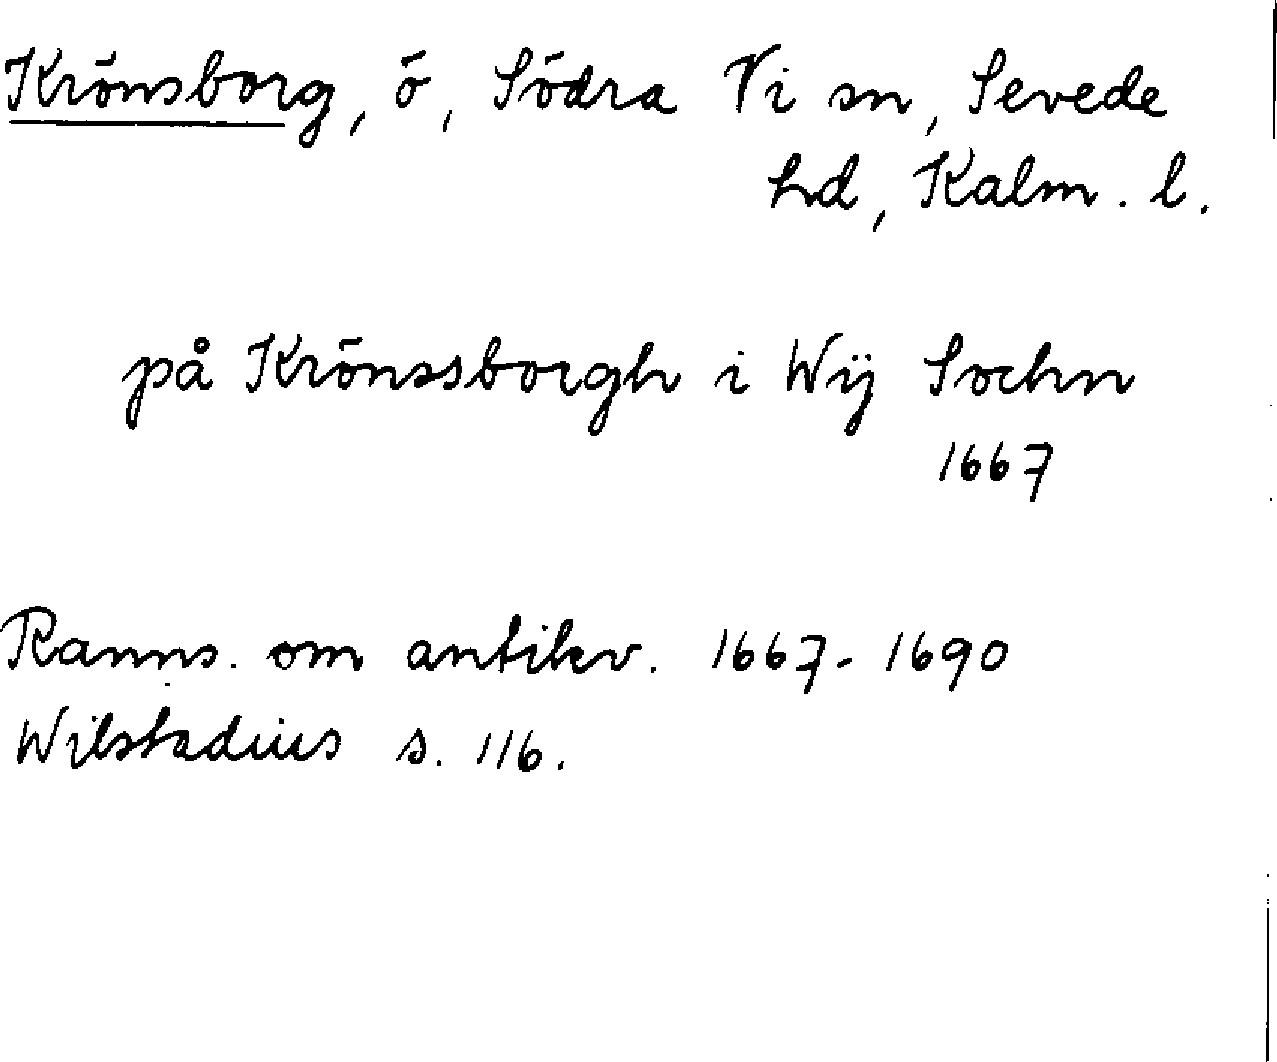 Krönsborg, ö, Södra Vi sn, Sevede
hd, Kalm. l.
på Krönssborgh i Wÿ Sochn
1667
Ranns. om antikv. 1667-1690
Wilstadius s. 116.